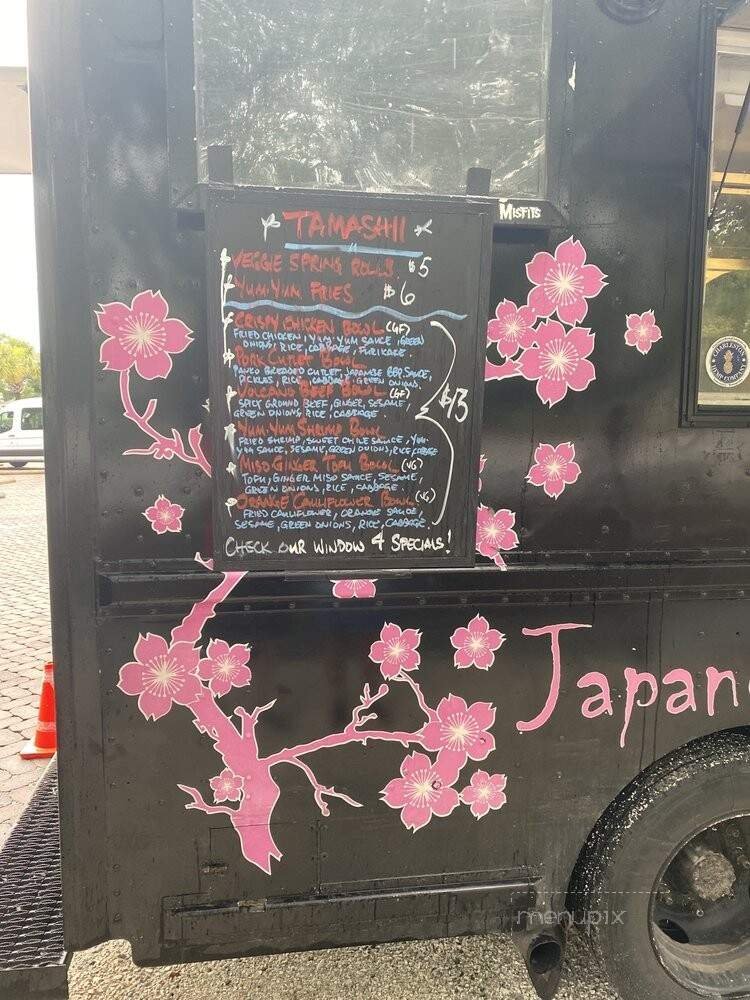 MISFITS
TAMASHI
VEGGIE SPRING ROLLS $5
YUM YUM FRIES $6
CRISPY CHICKEN BOWL (GF)
FRIED CHICKEN, YUM YUM SAUCE, GREEN
ONIONS, RICE, CABBAGE, FURIKAKE.
PORK CUTLET BOWL
PANKO BREADED CUTLET, JAPANESE BBQ SAUCE,
PICKLES, RICE, CABBAGE, GREEN ONIONS.
VOLCANO BEEF BOWL (GF)
SPICY GROUND BEEF, GINGER, SESAME,
GREEN ONIONS, RICE, CABBAGE.
$13
YUM YUM SHRIMP BOWL
FRIED SHRIMP, SWEET CHILE SAUCE, YUM-
YUM SAUCE, SESAME, GREEN ONIONS, RICE, CABBAGE
MISO GINGER TOFU BOWL (VG)
TOFU, GINGER MISO SAUCE, SESAME,
GREEN ONIONS, RICE, CABBAGE.
ORANGE CAULIFLOWER BOWL (VG)
FRIED CAULIFLOWER, ORANGE SAUCE
SESAME, GREEN ONIONS, RICE, CABBAGE.
CHECK OUR WINDOW 4 SPECIALS!
CHARLESTON
HEMP COMPANY
Japan
menupix